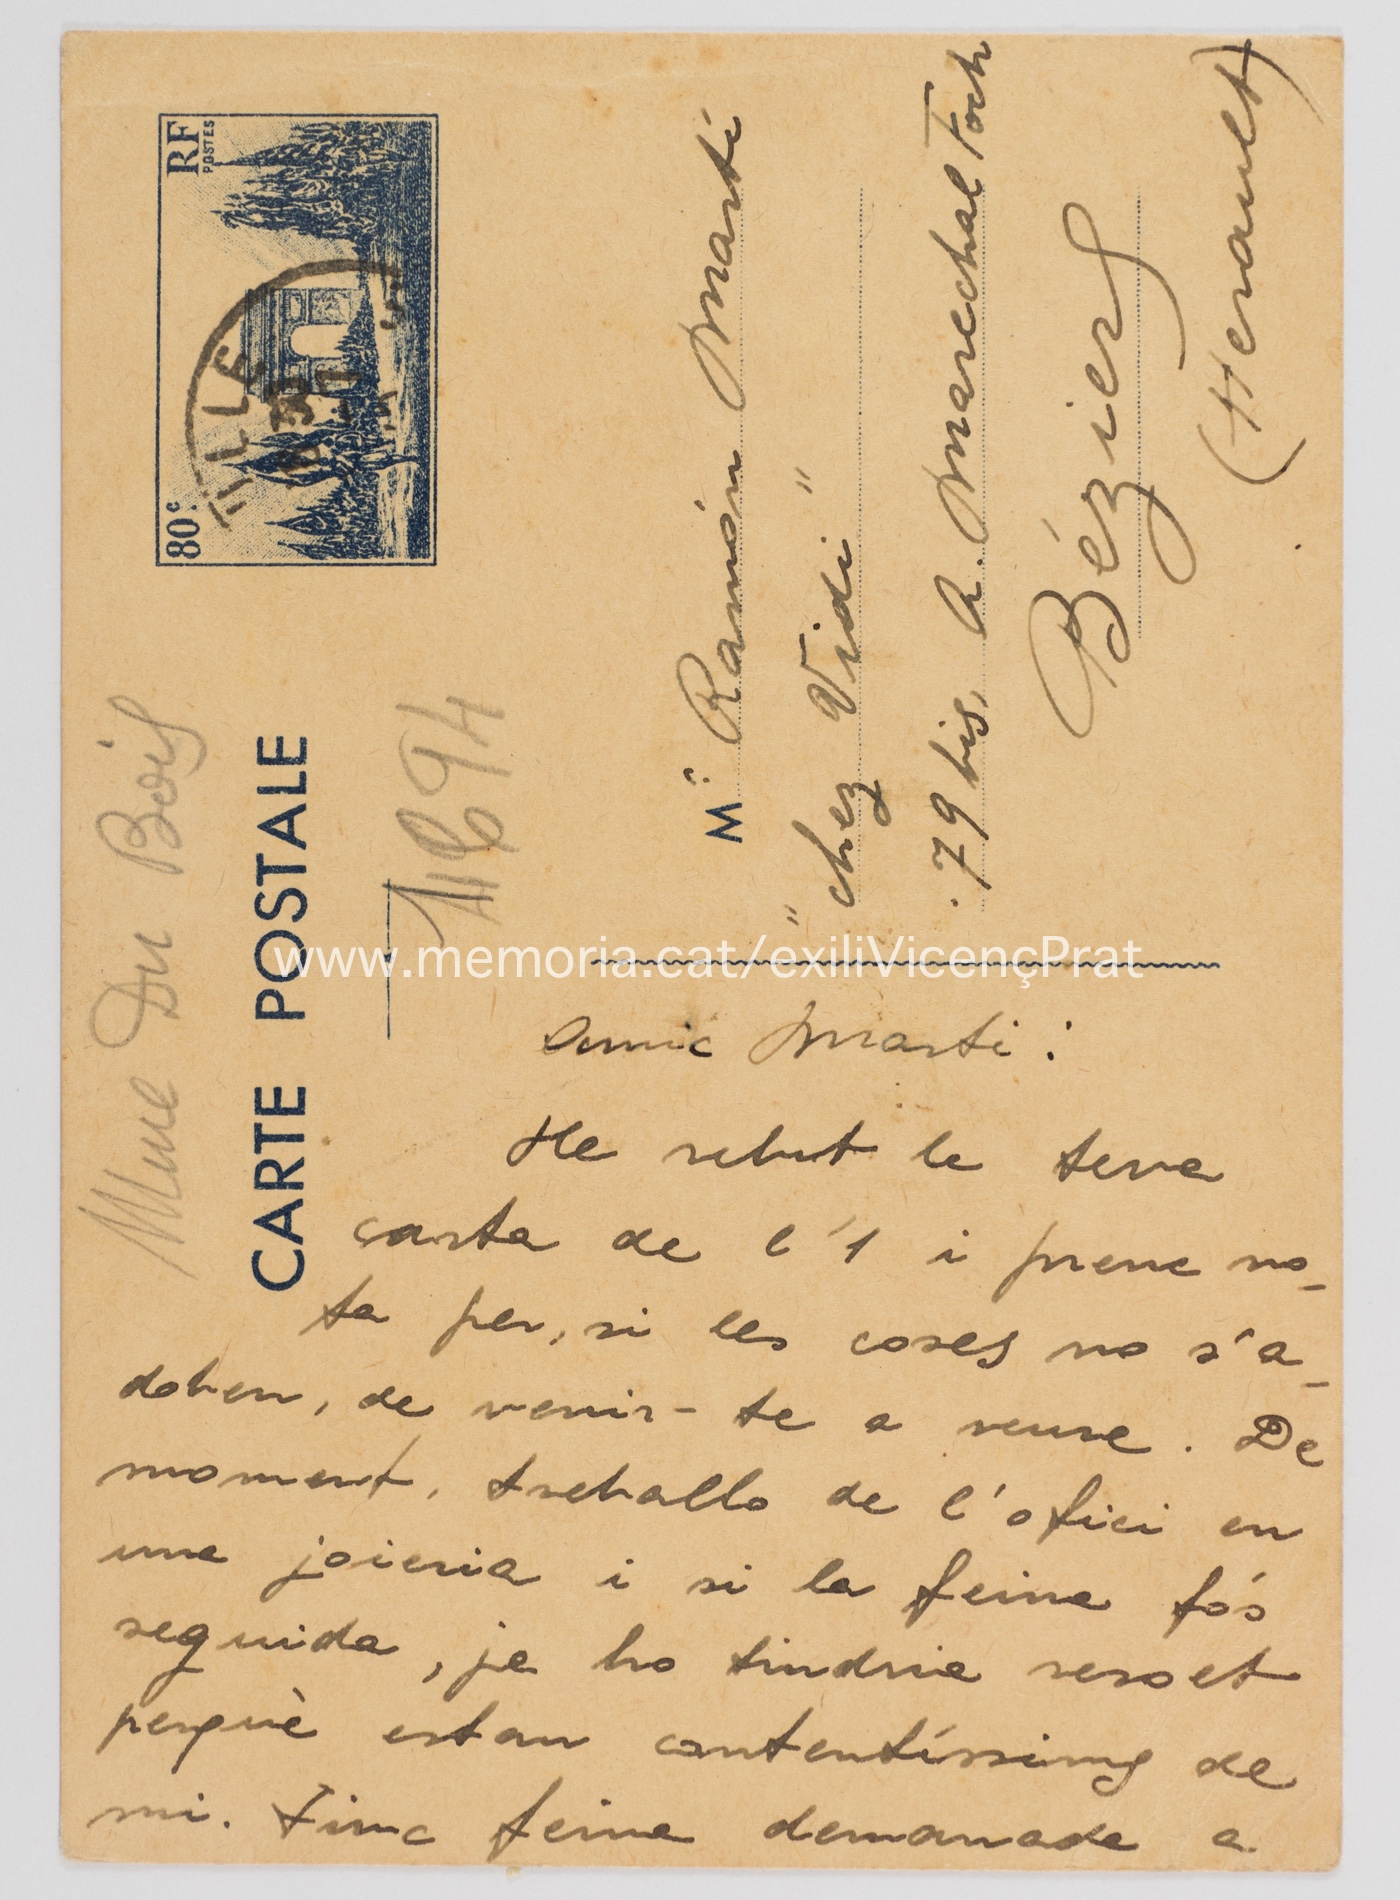 RF
POSTES
80c.
VILLE
Mme Du Bois
CARTE POSTALE
Mr. Ramón Martí
"chez Vidi"
79 bis, A. Marechal Foch
Béziers
(Herault)
www.memoria.cat/exiliVicençPrat
Amic Martí:
He rebut la teva
carta de l'1 i prenc no-
ta per, si les coses no s'a-
doben, de venir-te a veure. De
moment, treballo de l'ofici en
una joieria i si la feina fós
seguida, ja ho tindria resolt
perquè estan contentíssims de
mi. Tinc feina demanada a